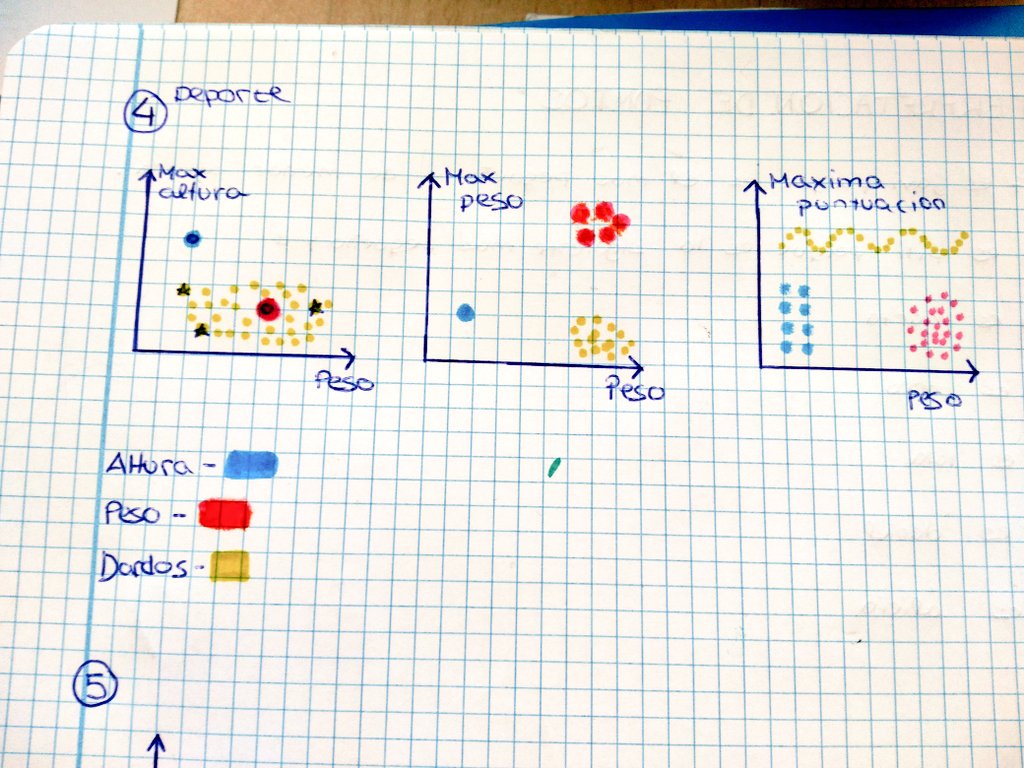 4 Deporte
Max
altura
Peso
Max
peso
Peso
Maxima
puntuacion
peso
Altura -
Peso -
Dardos -
5